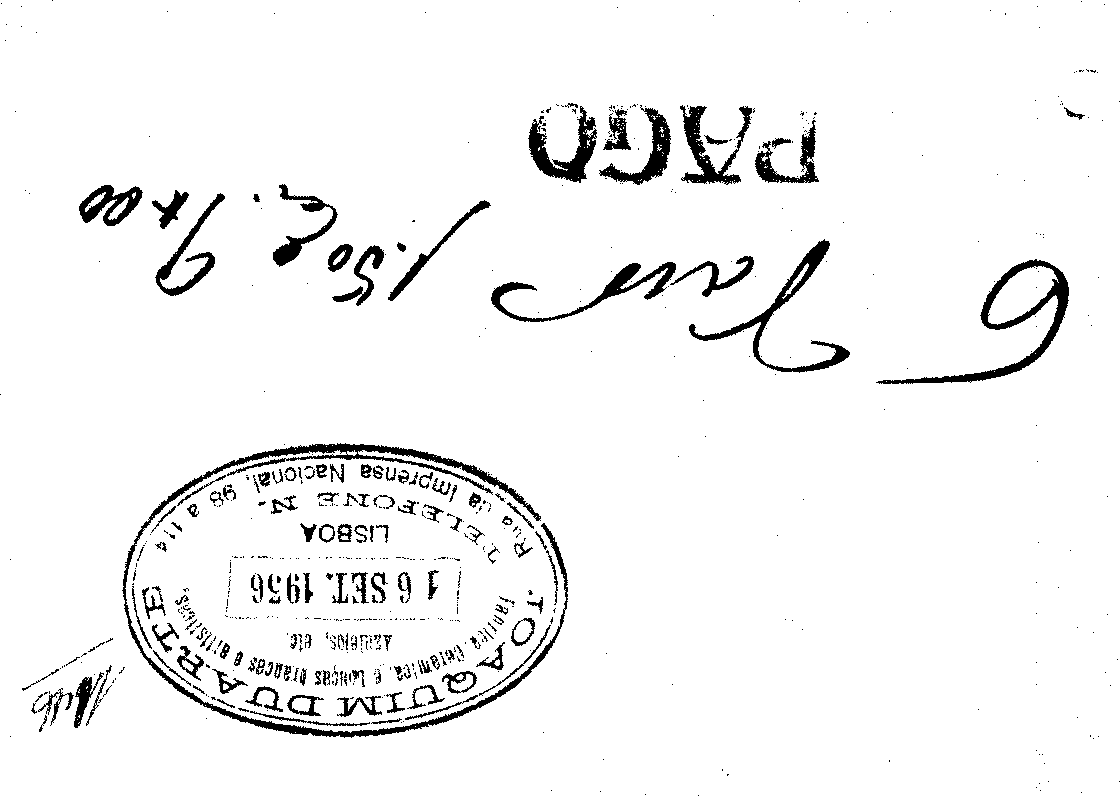 JOAQUIM DUARTE
Fabrica Ceramica, e Louças brancas e artisticas,
Azulejos, etc.
16 SET. 1936
LISBOA
TELEFONE N.
Rua da Imprensa Nacional, 98 a 114
6 1.50 9$00
PAGO